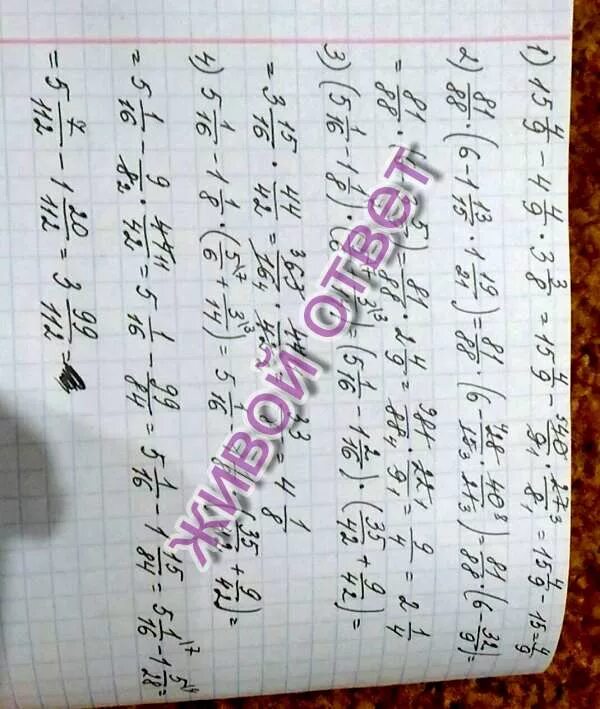 1) 15 4/9 - 4 4/9 · 3 3/8 = 15 4/9 - 40/9 · 27/8 = 15 4/9 - 15 = 4/9
2) 81/88 · (6 - 1 13/15 · 1 19/21) = 81/88 · (6 - 28/15 · 40/21) = 81/88 · (6 - 32/9) =
= 81/88 · 2 4/9 = 81/88 · 22/9 = 9/4 = 2 1/4
3) (5 1/16 - 1 1/8) · ( = (5 1/16 - 1 2/16) · (35/42 + 9/42) =
= 3 15/16 · 44/42 = 63/16 · 44/42 = 33/ = 4 1/8
4) 5 1/16 - 1 1/8 · (5/6 + 3/14) = 5 1/16 - (35/42 + 9/42) =
= 5 1/16 - 9/8 · 44/42 = 5 1/16 - 99/84 = 5 1/16 - 1 15/84 = 5 1/16 - 1 5/28 =
= 5 7/112 - 1 20/112 = 3 99/112
ЖИВОЙ ОТВЕТ